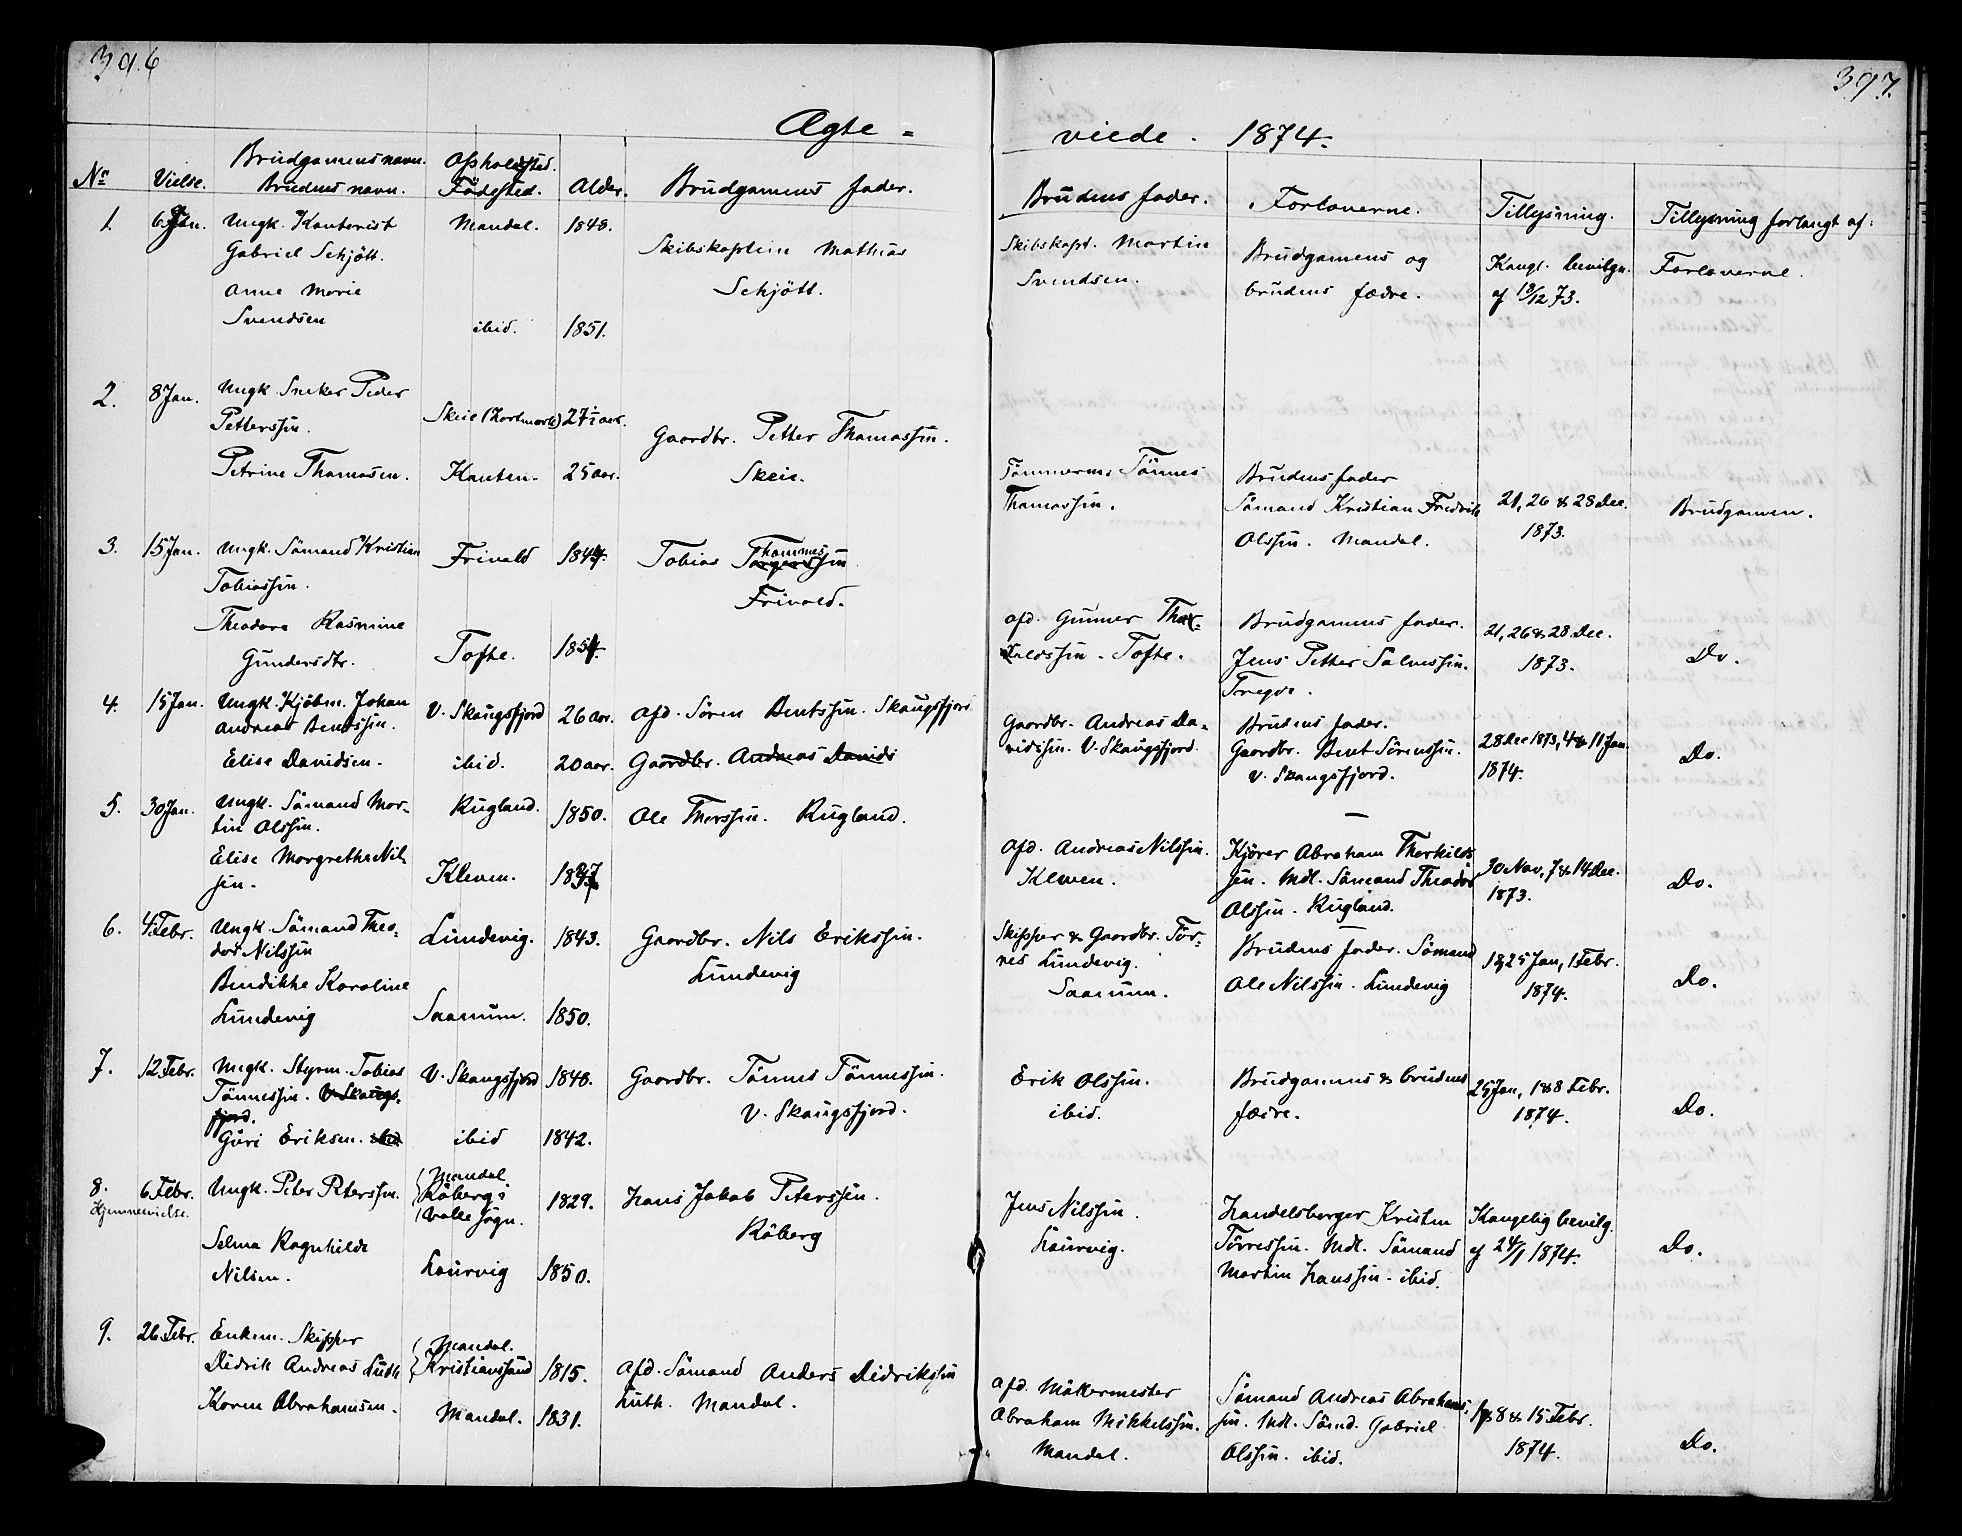 396
397.
Ægte =
viede. 1874.
No
Vielse.
Brudgomens navn.
Brudens navn.
Opholdsted.
Födested.
Alder.
Brudgomens fader.
Brudens fader.
Forloverne.
Tillysning.
Tillysning forlangt af:
1.
6 Jan.
Ungk. Kontorist
Gabriel Schjött.
Anne Marie
Svendsen
Mandal.
ibid.
1848.
1851.
Skibskaptein Mathias
Schjött.
Skibskapt. Martin
Svendsen.
Brudgomens og
brudens fædre.
Kongl. bevilgn.
af 13/12 73.
Forloverne.
2.
8 Jan.
Ungk. Sneker Peder
Petterssen.
Petrine Thomasen.
Skeie
Kanten.
27½ aar.
25 aar.
Gaardbr. Petter Thomassen.
Skeie.
Tömmerm. Tönnes
Thomassen.
Brudens fader
Sömand Kristian Fredrik
Olssen. Mandal.
21, 26 & 28 Dec.
1873.
Brudgomen.
3.
15 Jan.
Ungk. Sömand Kristian
Tobiassen.
Theodora Rasmine
Gundersdtr.
Frivold
Tofte.
1844.
1854.
Tobias Thommessen
Frivold.
Afd. Gunner Thor-
kaldssen. Tofte.
Brudgomens fader.
Jens Petter Salvessen.
Tregde.
21, 26 & 28 Dec.
1873.
Do.
4.
15 Jan.
Ungk. Kjöbm. Johan
Andreas Bentssen.
Elise Davidsen.
V. Skaugsfjord
ibid.
26 aar.
20 aar.
Afd. Sören Bentssen. Skaugsfjord
Gaardbr. Andreas Davids
Gaardbr. Andreas Da-
vidssen. V. Skaugsfjord.
Brudens fader.
Gaardbr. Bent Sörenssen.
V. Skaugsfjord.
28 Dec 1873, 4 & 11 Jan
1874.
Do.
5.
30 Jan.
Ungk. Sömand Mor-
tin Olssen.
Elise Morgrethe Nils
sen.
Rugland.
Kleven.
1850.
Ole Thorssen. Rugland.
Afd. Andreas Nilssen.
Kleven.
—
Kjörer Abraham Therkilds
sen. Mdl. Sömand Theodor
Olssen. Rugland.
30 Nov, 7 & 14 Dec.
1873.
Do.
6.
4 Febr.
Ungk. Sömand Theo-
dor Nilssen
Bendikte Karoline
Lundevig
Lundevig.
Saanum.
1843.
1850.
Gaardbr. Nils Erikssen.
Lundevig
Skipper & Gaardbr. Tör-
res Lundevig.
Saanum.
Brudens fader. Sömand
Ole Nilssen. Lundevig
18, 25 Jan, 1 Febr.
1874.
Do.
7.
12 Febr.
Ungk. Styrm. Tobias
Tönnessen. V. Skaugs-
fjord.
Guri Eriksen. ibid.
V. Skaugsfjord
ibid
1840.
1842.
Gaardbr. Tönnes Tönnessen.
V. Skaugsfjord.
Erik Olssen.
ibid.
Brudgomens & brudens
fædre.
25 Jan, 1 & 8 Febr.
1874.
Do.
8.
Hjemmevielse.
6 Febr.
Ungk. Peter Peterssen.
Selma Ragnhilde
Nilsen.
Mandal.
Röberg i
Valle sogn.
Laurvig
1829.
1850.
Hans Jakob Peterssen.
Röberg
Jens Nilssen.
Laurvig.
Handelsborger Kristen
Törressen. Mdl. Sömand
Martin Hanssen. ibid.
Kongelig bevilg.
af 24/1 1874.
Do.
9.
26 Febr.
Enkem. Skipper
Didrik Andreas Luth
Karen Abrahamsen.
Mandal.
Kristianssand
Mandal.
1815.
1831.
Afd. Sömand Anders Didrikssen
Luth. Mandal.
Afd. Möllermester
Abraham Mikkelssen.
Mandal.
Sömand Andreas Abrahams-
sen. Mdl. Sömd. Gabriel
Olssen. ibid.
1, 8 & 15 Febr.
1874.
Do.